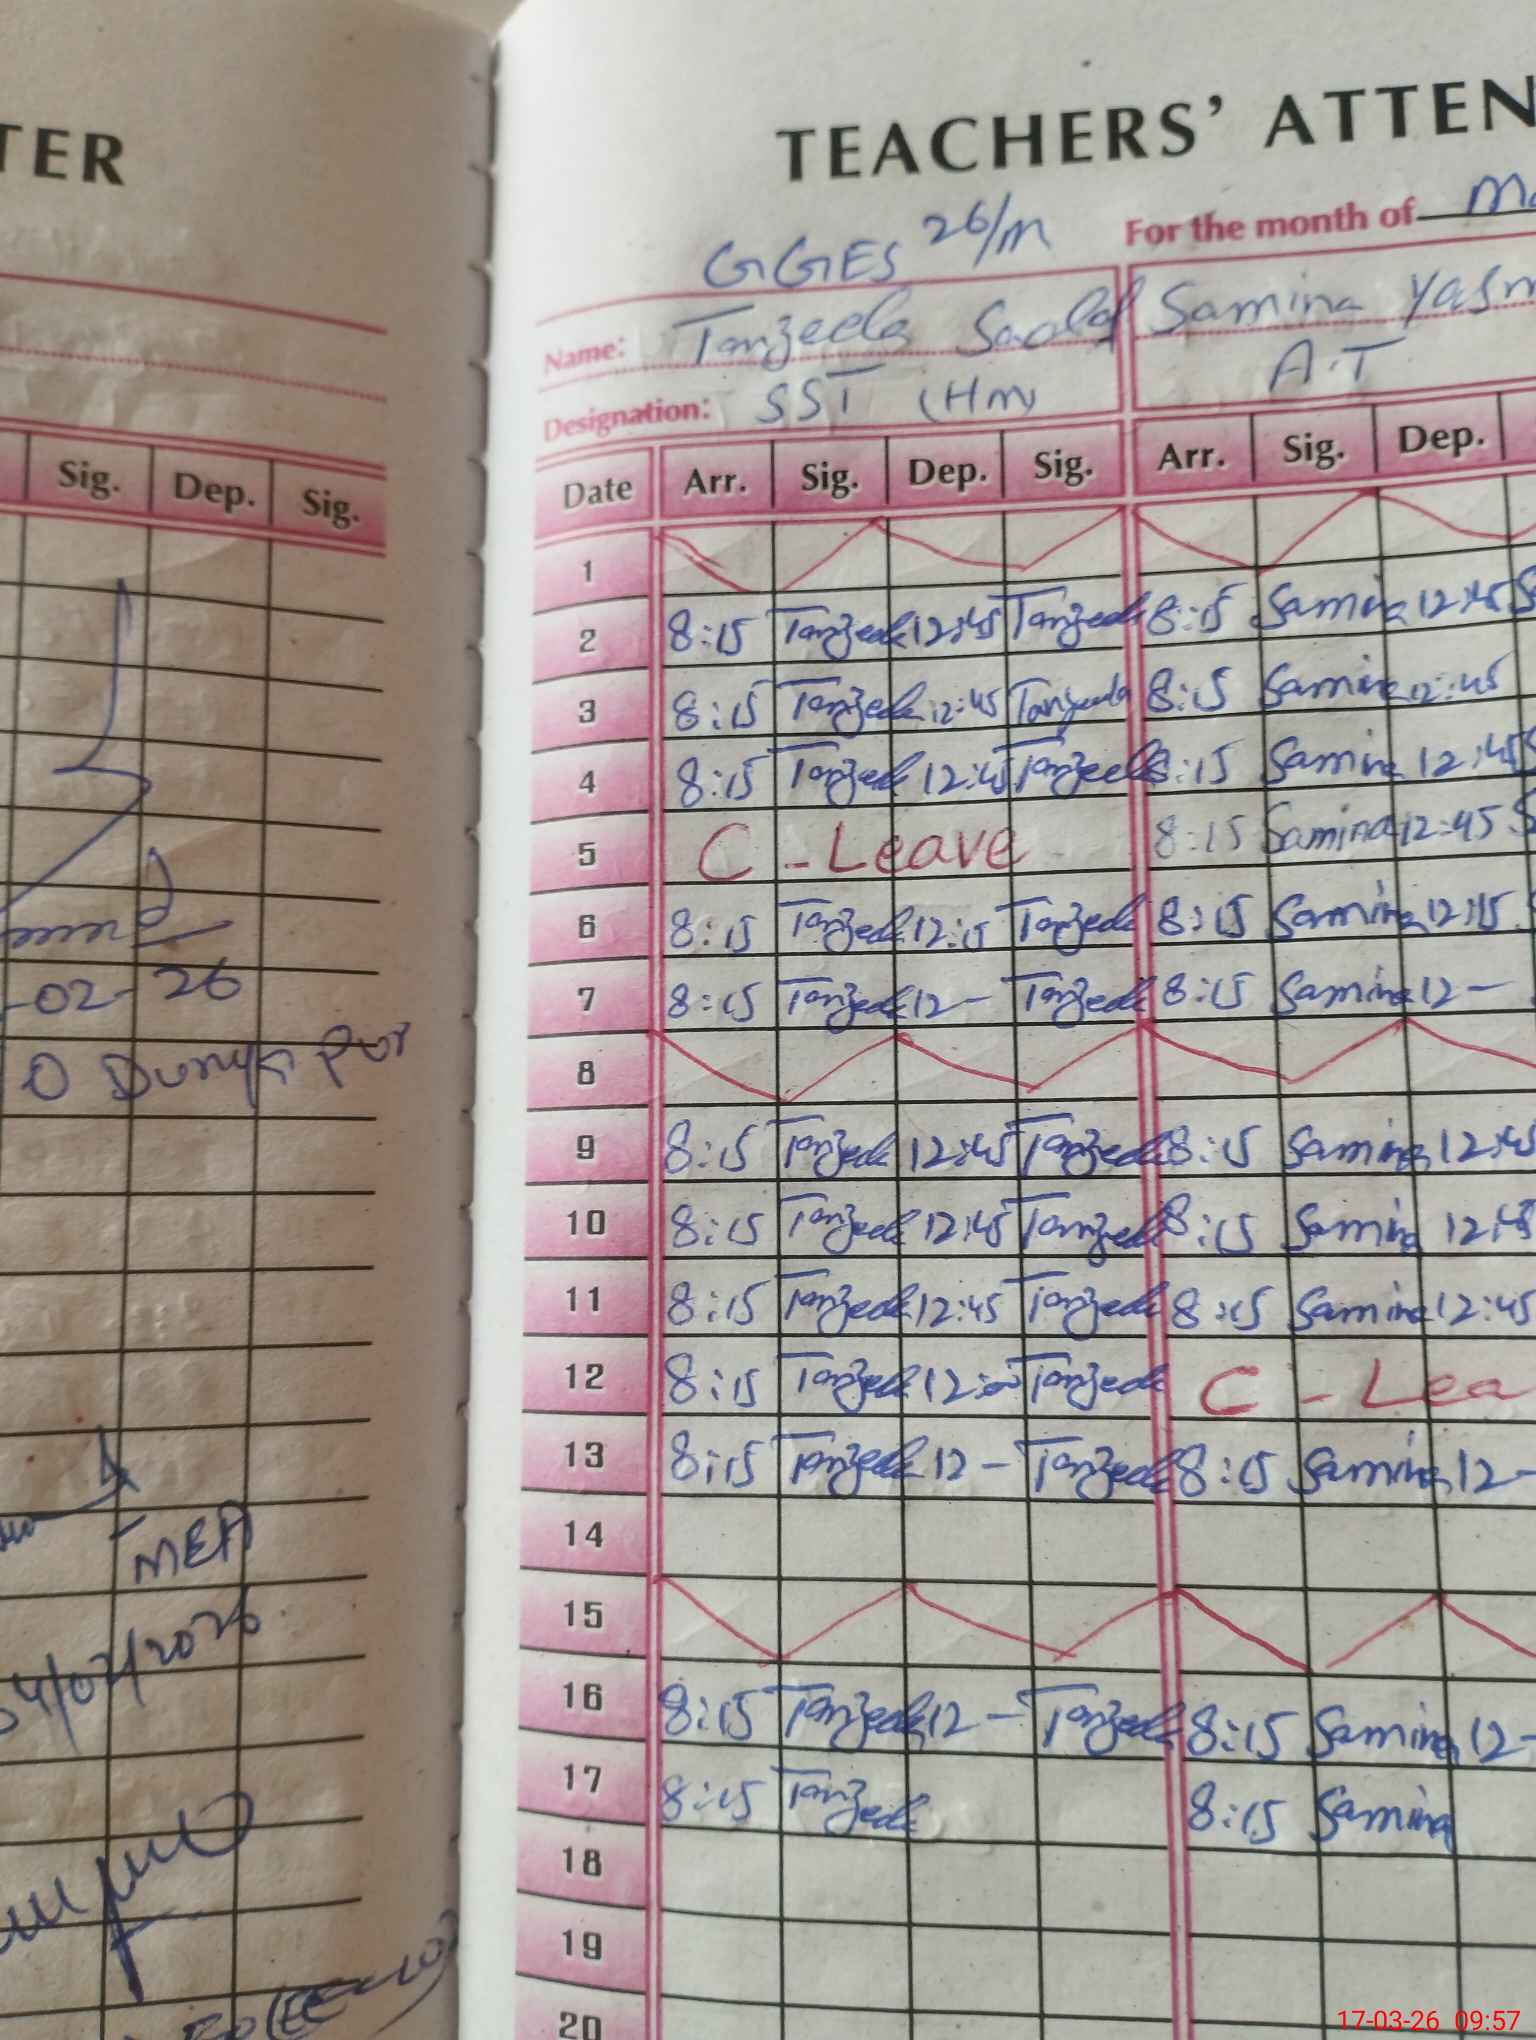 TER
Sig. Dep. Sig.
-02-26
MEA
TEACHERS' ATTEN
GGES 26/M For the month of
Name: Tanzeela Samina
Designation: SST (Hm) A.T
Date Arr. Sig. Dep. Sig. Arr. Sig. Dep.
1
2 8:15 Tanzeela 12:45 Tanzeela 8:15 Samina 12:45
3 8:15 Tanzeela 12:45 Tanzeela 8:15 Samina 12:45
4 8:15 Tanzeela 12:45 Tanzeela 8:15 Samina 12:45
5 C - Leave 8:15 Samina 12:45
6 8:15 Tanzeela 12:15 Tanzeela 8:15 Samina 12:15
7 8:15 Tanzeela 12- Tanzeela 8:15 Samina 12-
8
9 8:15 Tanzeela 12:45 Tanzeela 8:15 Samina 12:45
10 8:15 Tanzeela 12:45 Tanzeela 8:15 Samina 12:45
11 8:15 Tanzeela 12:45 Tanzeela 8:15 Samina 12:45
12 8:15 Tanzeela Tanzeela C - Lea
13 8:15 Tanzeela 12- Tanzeela 8:15 Samina 12-
14
15
16 8:15 Tanzeela 12- Tanzeela 8:15 Samina 12-
17 8:15 Tanzeela 8:15 Samina
18
19
20
17-03-26 09:57